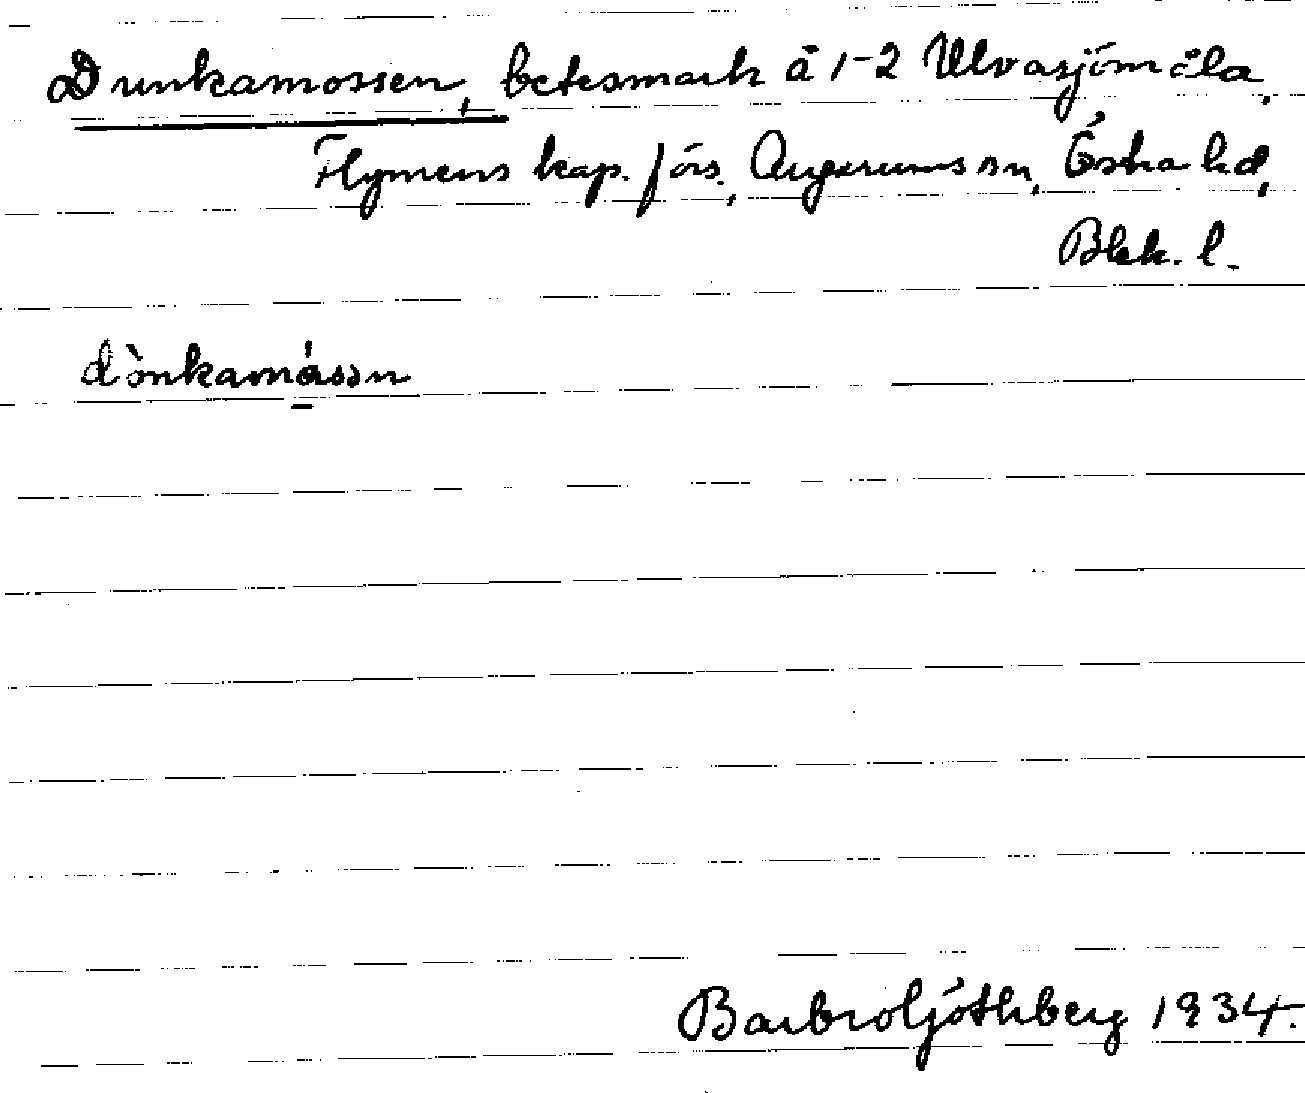 Dunkamossen, betesmark å 1-2 Ulvasjömåla,
Flymens kap. förs., Augerums sn, Östra hd,
Blek. l.
dònkamóssn
Barbro Ljóthberg 1934.